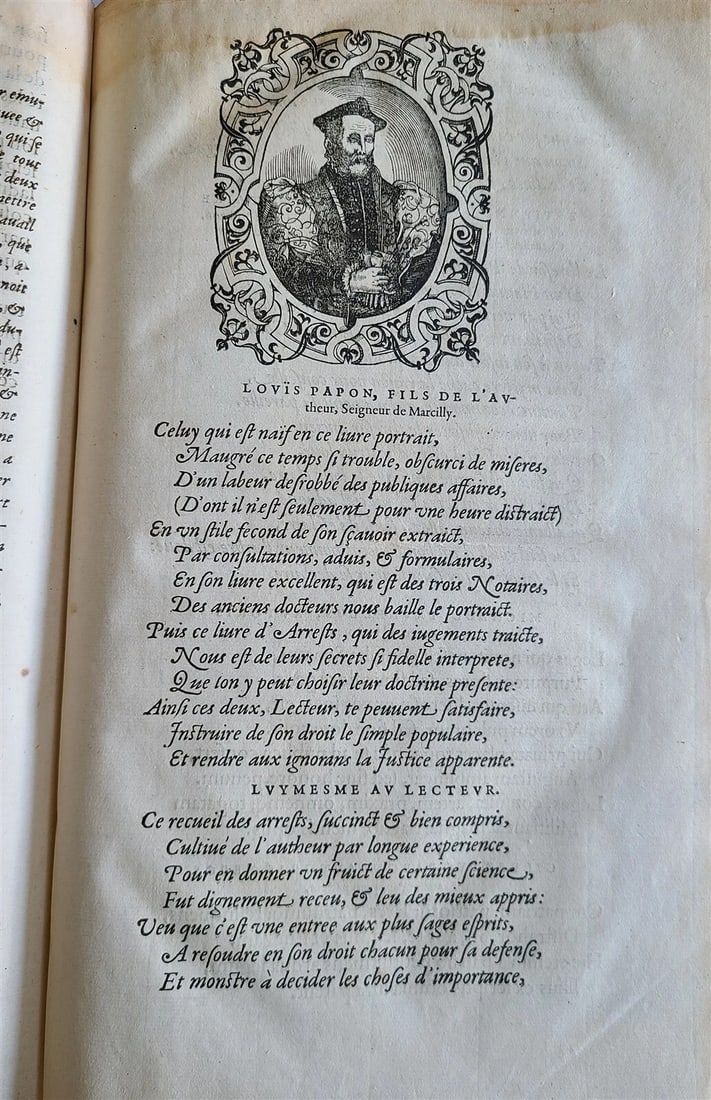 r emu-
uee &
qui se
tout
deux
mettre
auail
que
, a-
noit
, &
du-
est
in-
ne
ne
a
LOVÏS PAPON, FILS DE L'AV-
theur, Seigneur de Marcilly.
Celuy qui est naif en ce liure portrait,
Maugré ce temps si trouble, obscurci de miseres,
D'un labeur desrobbé des publiques affaires,
(D'ont il n'est seulement pour vne heure distraict)
En vn stile fecond de son sçauoir extraict,
Par consultations, aduis, & formulaires,
En son liure excellent, qui est des trois Notaires,
Des anciens docteurs nous baille le portraict.
Puis ce liure d'Arrests, qui des iugements traicte,
Nous est de leurs secrets si fidelle interprete,
Que lon y peut choisir leur doctrine presente:
Ainsi ces deux, Lecteur, te peuuent satisfaire,
Instruire de son droit le simple populaire,
Et rendre aux ignorans la Justice apparente.
LVYMESME AV LECTEVR.
Ce recueil des arrests, succinct & bien compris,
Cultiué de l'autheur par longue experience,
Pour en donner vn fruict de certaine science,
Fut dignement receu, & leu des mieux appris:
Veu que c'est vne entree aux plus sages esprits,
A resoudre en son droit chacun pour sa defense,
Et monstre à decider les choses d'importance,